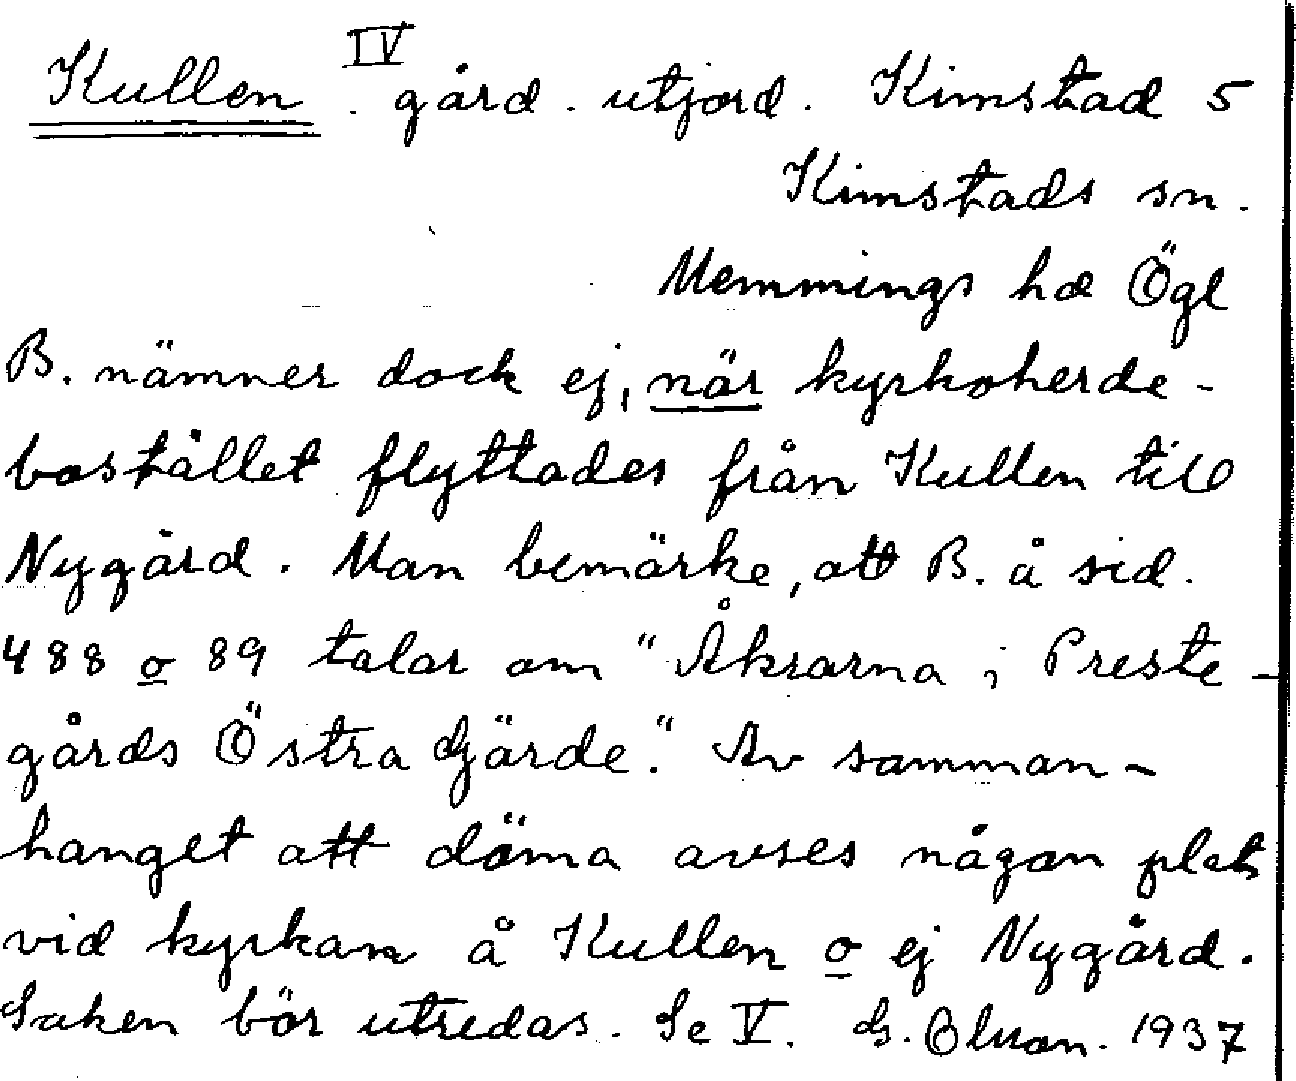 Kullen IV. gård. utjord. Kimstad 5
Kimstads sn.
Memmings hd Ögl
B. nämner dock ej, när kyrkoherde-
bostället flyttades från Kullen till
Nygård. Man bemärke, att B. å sid.
488 o 89 talar om "Åkrarna i Preste-
gårds Östra Gjärde." Av samman-
hanget att döma avses någon plats
vid kyrkan å Kullen o ej Nygård.
Saken bör utredas. Se V. G. Olson. 1937